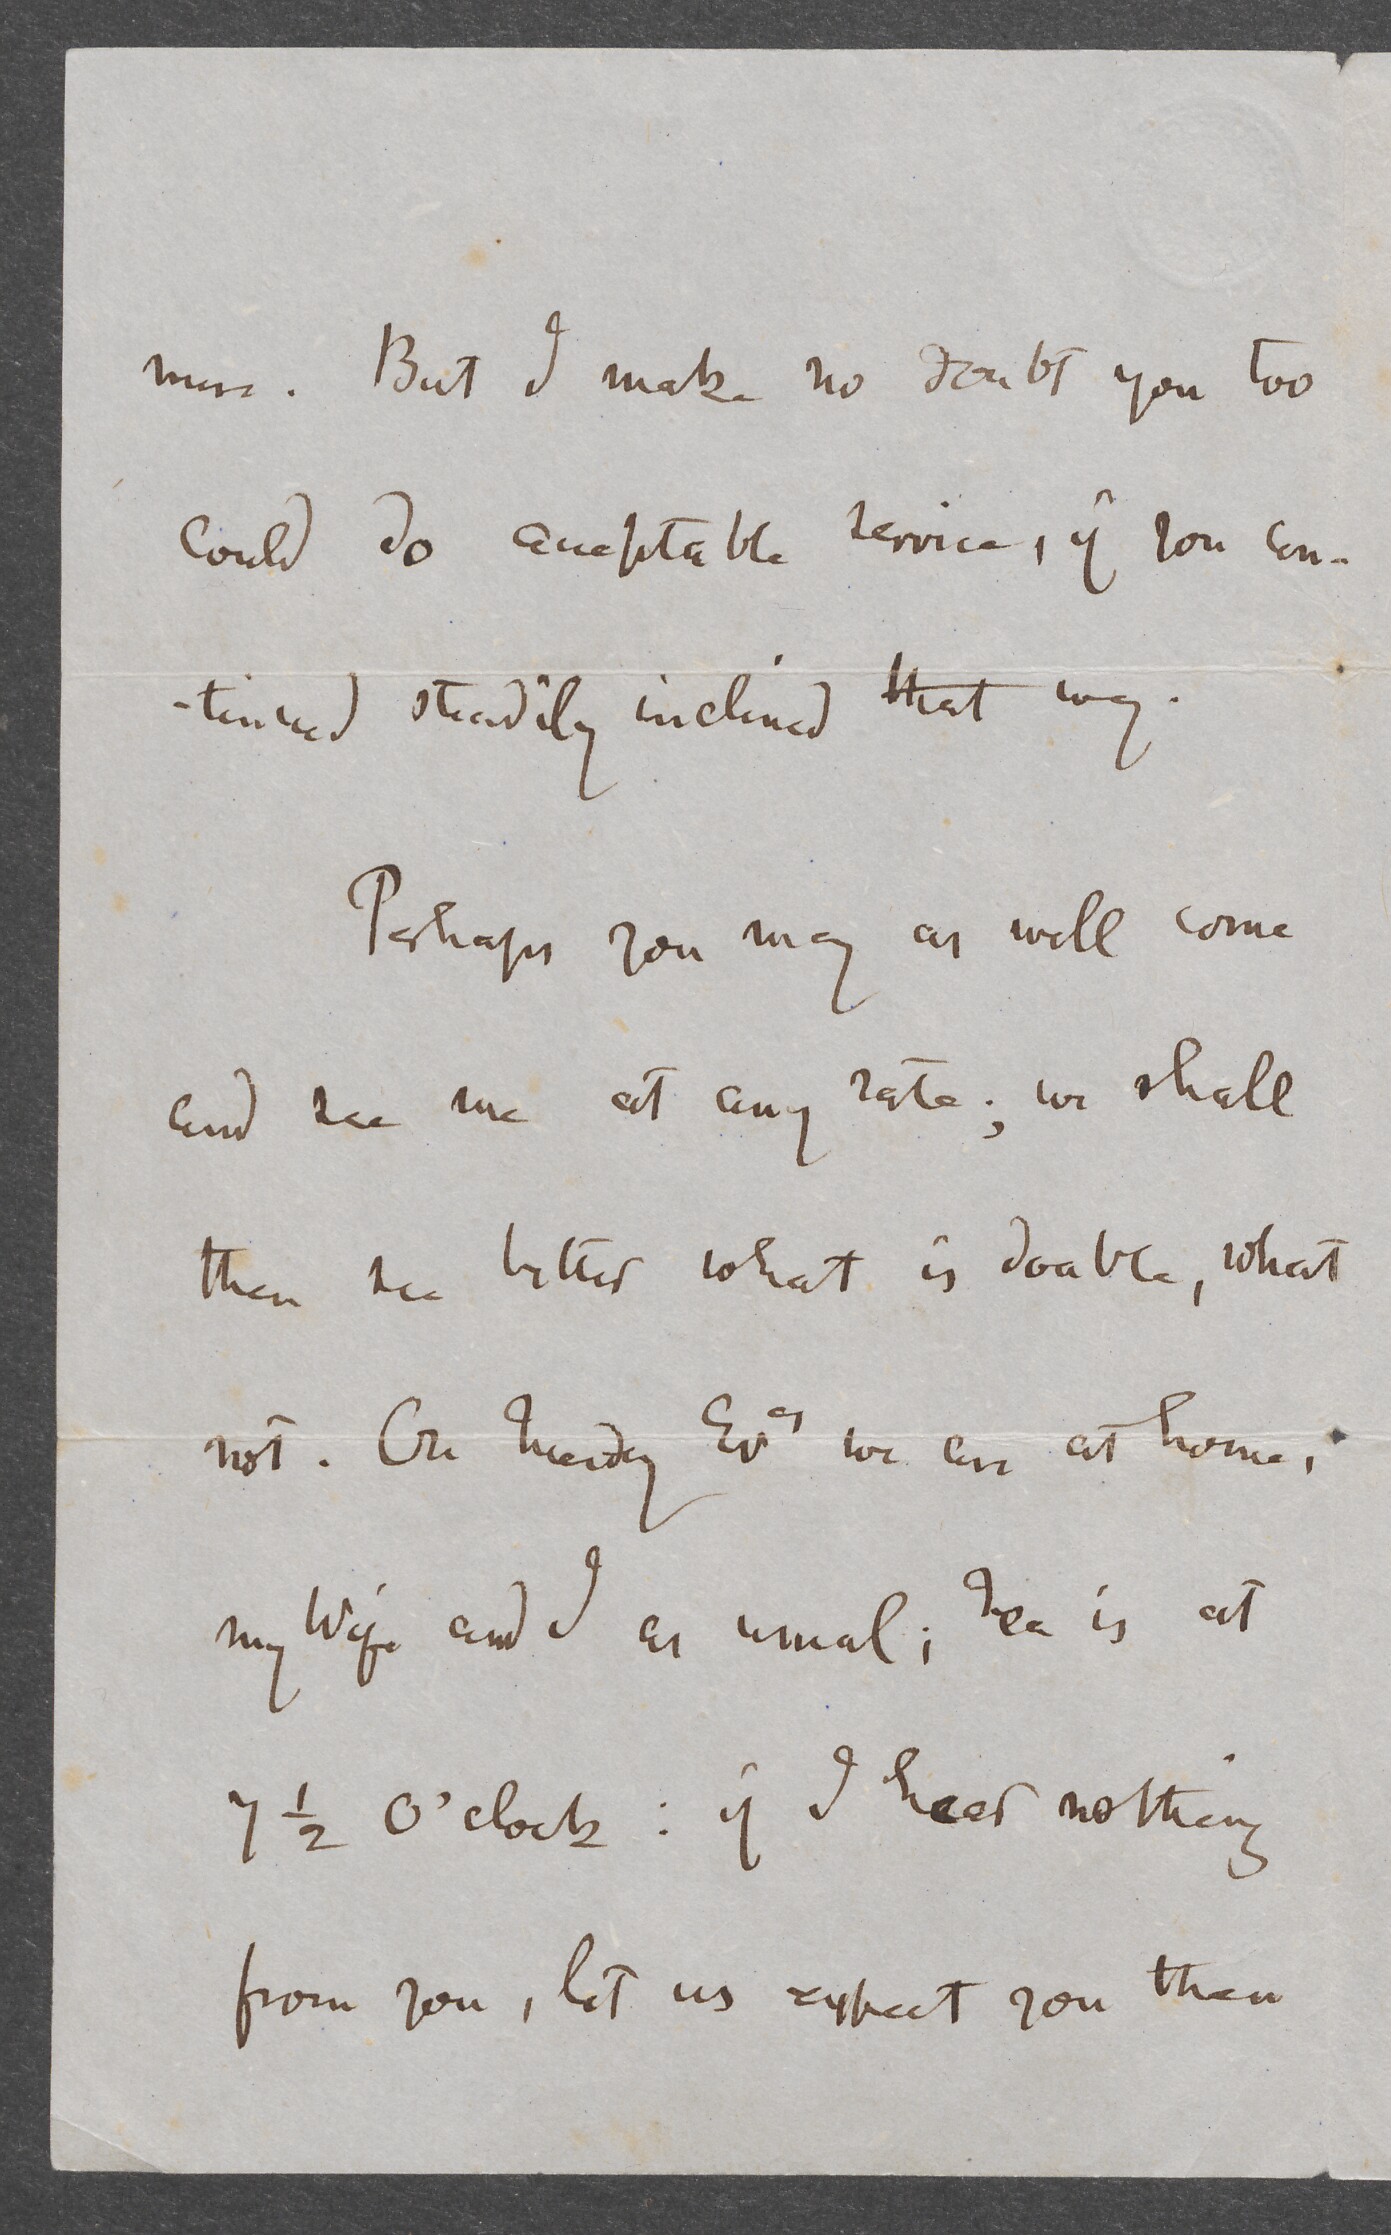 more. But I make no doubt you too
could do acceptable service, if you con-
-tinued steadily inclined that way.
Perhaps you may as well come
and see me at any rate; we shall
then see better what is doable, what
not. On Tuesday Ev^gs we are at home,
my Wife and I as usual; Tea is at
7 1/2 O'clock : if I hear nothing
from you, let us expect you then